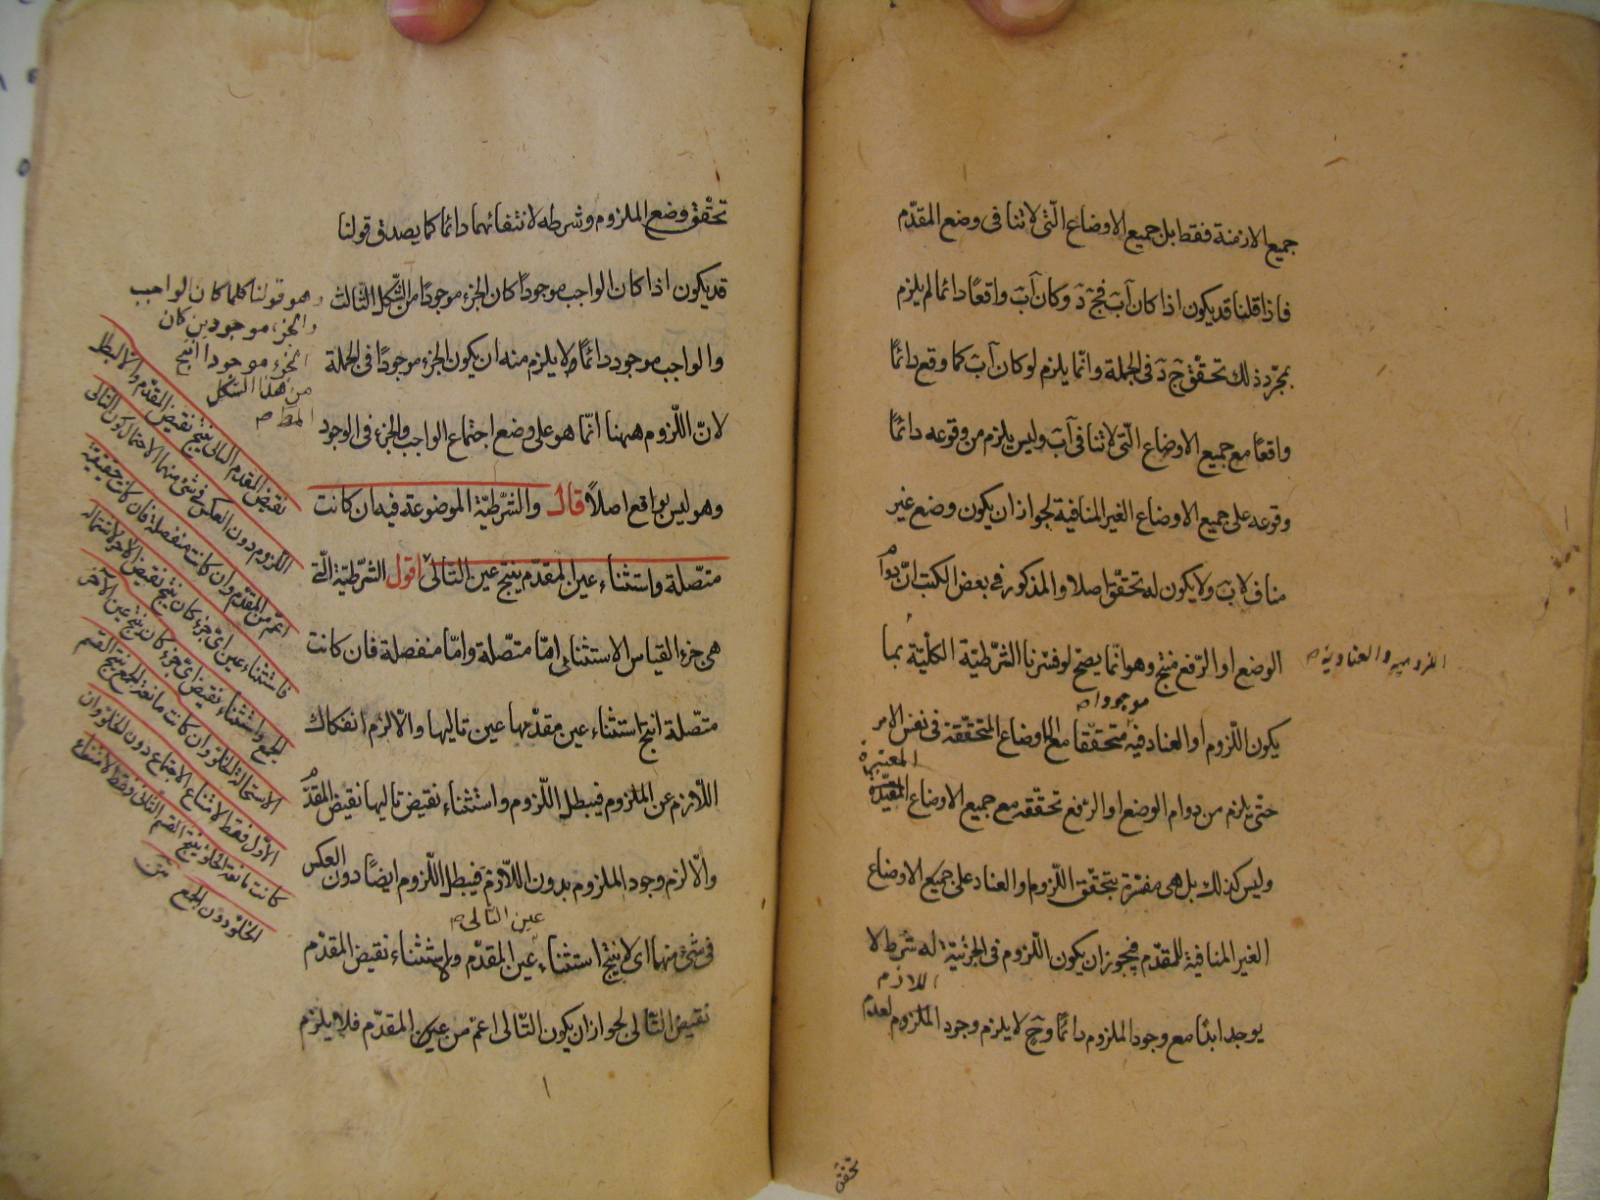 جميع الازمنة فقط بل جميع الاوضاع الّتى لاتنافى وضع المقدّم
فاذا قلنا قد يكون اذا كان اَبَ فجَ دَ وكان اَبَ واقعًا دائما لم يلزم
بمجرّد ذلك تحقّق جَ دَ فى الجملة وانّما يلزم لو كان اَبَ كما وقع دائمًا
واقعًا مع جميع الاوضاع الّتى لاتنافى اَبَ وليس يلزم من وقوعه دائمًا
وقوعه على جميع الاوضاع الغير المنافية لجواز ان يكون وضع غير
مناف لابَ ولا يكون له تحقّق اصلا والمذكور فى بعض الكتب انّ دوام
الوضع او الرّفع منتج وهو انّما يصحّ لو فسّرنا الشّرطيّة الكلّيّة بما
اللزوميه والعناديه صح
موجودا صح
يكون اللّزوم او العناد فيه متحقّقا مع الاوضاع المتحقّقة فى نفس الامر
المعتبرة
حتّى يلزم من دوام الوضع او الرّفع تحقّقه مع جميع الاوضاع المقيّدة
وليس كذلك بل هى مفسّرة بتحقّق اللّزوم او العناد على جميع الاوضاع
الغير المنافية للمقدّم فيجوز ان يكون اللّزوم فى الجزئيّة له شرط لا
اللازم
يوجد ابدًا مع وجود الملزوم دائمًا وحَ لا يلزم وجود الملزوم لعدم
تحقق
تحقّق وضع الملزوم وشرطه لانتفائهما دائما كما يصدق قولنا
قد يكون اذا كان الواجب موجودًا كان الجزء موجودًا من الشّكل الثّالث
والواجب موجود دائمًا ولا يلزم منه ان يكون الجزء موجودًا فى الجملة
لانّ اللّزوم ههنا انّما هو على وضع اجتماع الواجب والجزء فى الوجود
وهو ليس بواقع اصلاً قال والشّرطيّة الموضوعة فيه ان كانت
متّصلة واستثناء عين المقدّم ينتج عين التّالى اقول الشّرطيّة الّتى
هى جزء القياس الاستثنائى امّا متّصلة وامّا منفصلة فان كانت
متّصلة انتج استثناء عين مقدّمها عين تاليها والّا لزم انفكاك
اللّازم عن الملزوم فيبطل اللّزوم واستثناء نقيض تاليها نقيض المقدّم
والّا لزم وجود الملزوم بدون اللّازم فيبطل اللّزوم ايضًا دون العكس
عين التّالى صح
فى شئ منهما اى لا ينتج استثناء عين المقدّم ولا استثناء نقيض المقدّم
نقيض التّالى لجواز ان يكون التّالى اعمّ من عين المقدّم فلا يلزم
وهو قولنا كلما كان الواجب
والجزء موجودين كان
الجزء موجودا انتج
من هذا الشكل
المط صح
نقيض المقدم التالى ينتج نقيض المقدّم والّا لبطل
اللّزوم دون العكس فى شئ منهما لاحتمال كون التّالى
اعمّ من المقدّم وان كانت منفصلة فان كانت حقيقيّة
فاستثناء عين اىّ جزء كان ينتج نقيض الآخر لاستحالة
الجمع واستثناء نقيض اىّ جزء كان ينتج عين الآخر
لاستحالة الخلوّ وان كانت مانعة الجمع ينتج القسم
الاوّل فقط لامتناع الاجتماع دون الخلوّ وان
كانت مانعة الخلوّ ينتج القسم الثّانى فقط لامتناع
الخلوّ دون الجمع متن